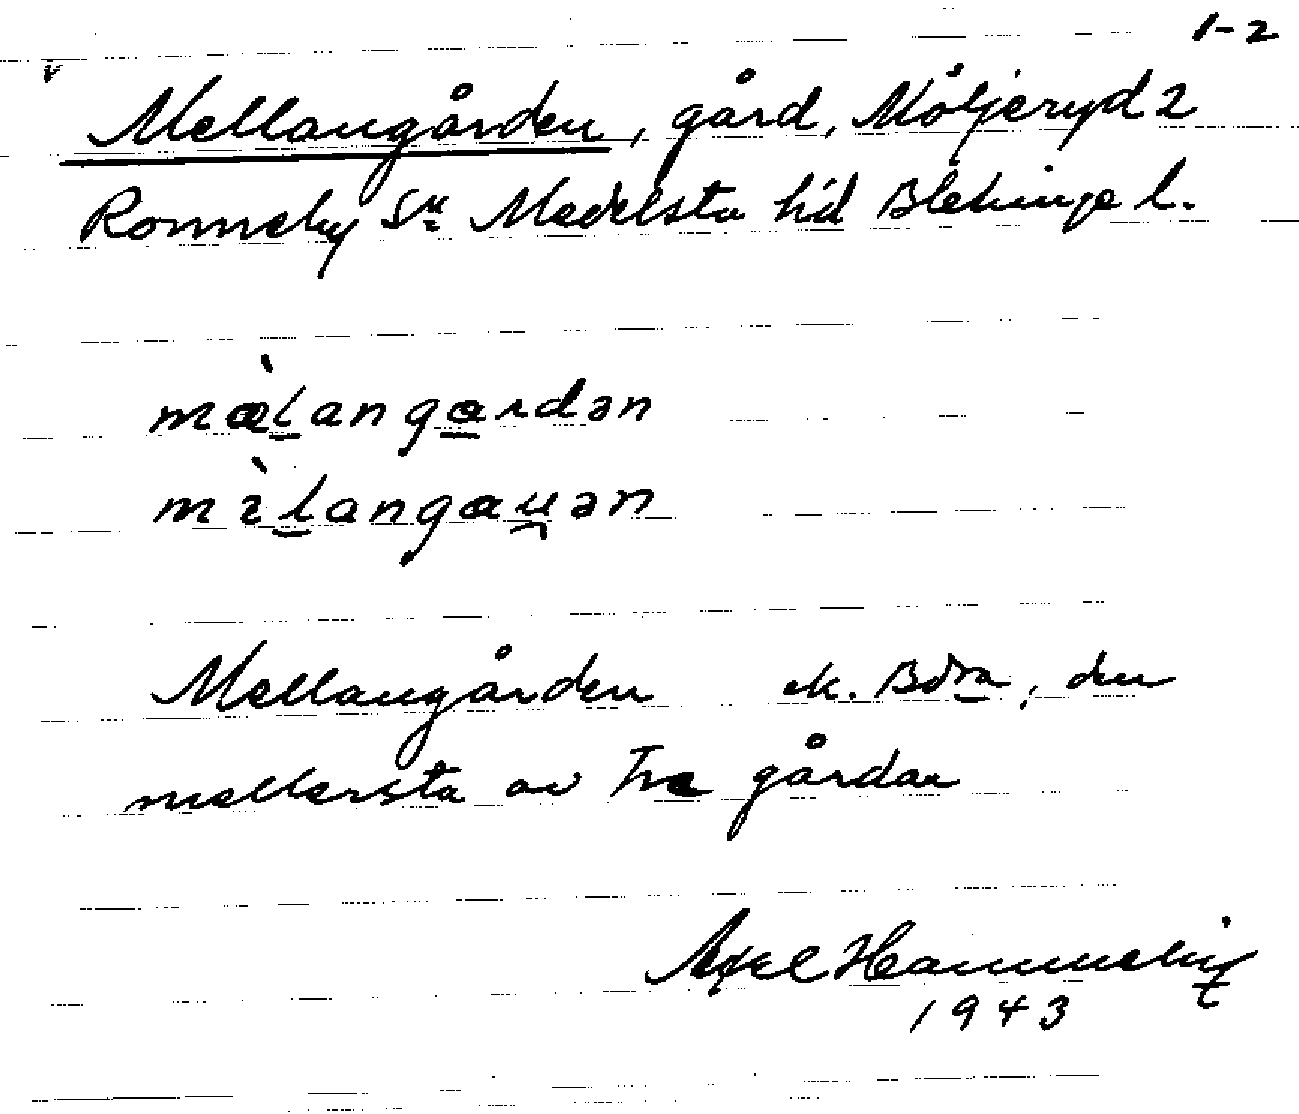 1-2
v
Mellangården, gård, Möljeryd 2
Ronneby Sn Medelsta hd Blekinge l.
mæ̀langardən
mìlangauən
Mellangården ek. Bdra, den
mellersta av Tre gårdar
Axel Hammesky
1943